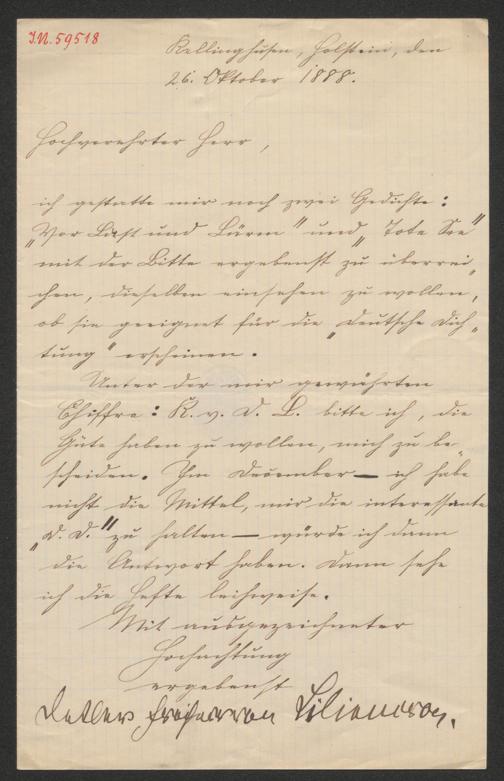 I.N. 59518
Kellinghusen, Holstein, den
26. Oktober 1888.
Hochverehrter Herr,
ich gestatte mir noch zwei Gedichte:
„Vor Last und Lärm" und „Tote See"
mit der Bitte ergebenst zu überrei„
chen, dieselben einsehen zu wollen,
ob sie geeignet für die „Deutsche Dich„
tung" erscheinen.
Unter der mir gewährten
Chiffre: K. v. D. L. bitte ich, die
Güte haben zu wollen, mich zu be„
scheiden. Im December — ich habe
nicht die Mittel, mir die interessante
„D. D." zu halten — würde ich dann
die Antwort haben. Dann sehe
ich die Hefte leihweise.
Mit ausgezeichneter
Hochachtung
ergebenst
Detlev Freiherr von Liliencron.